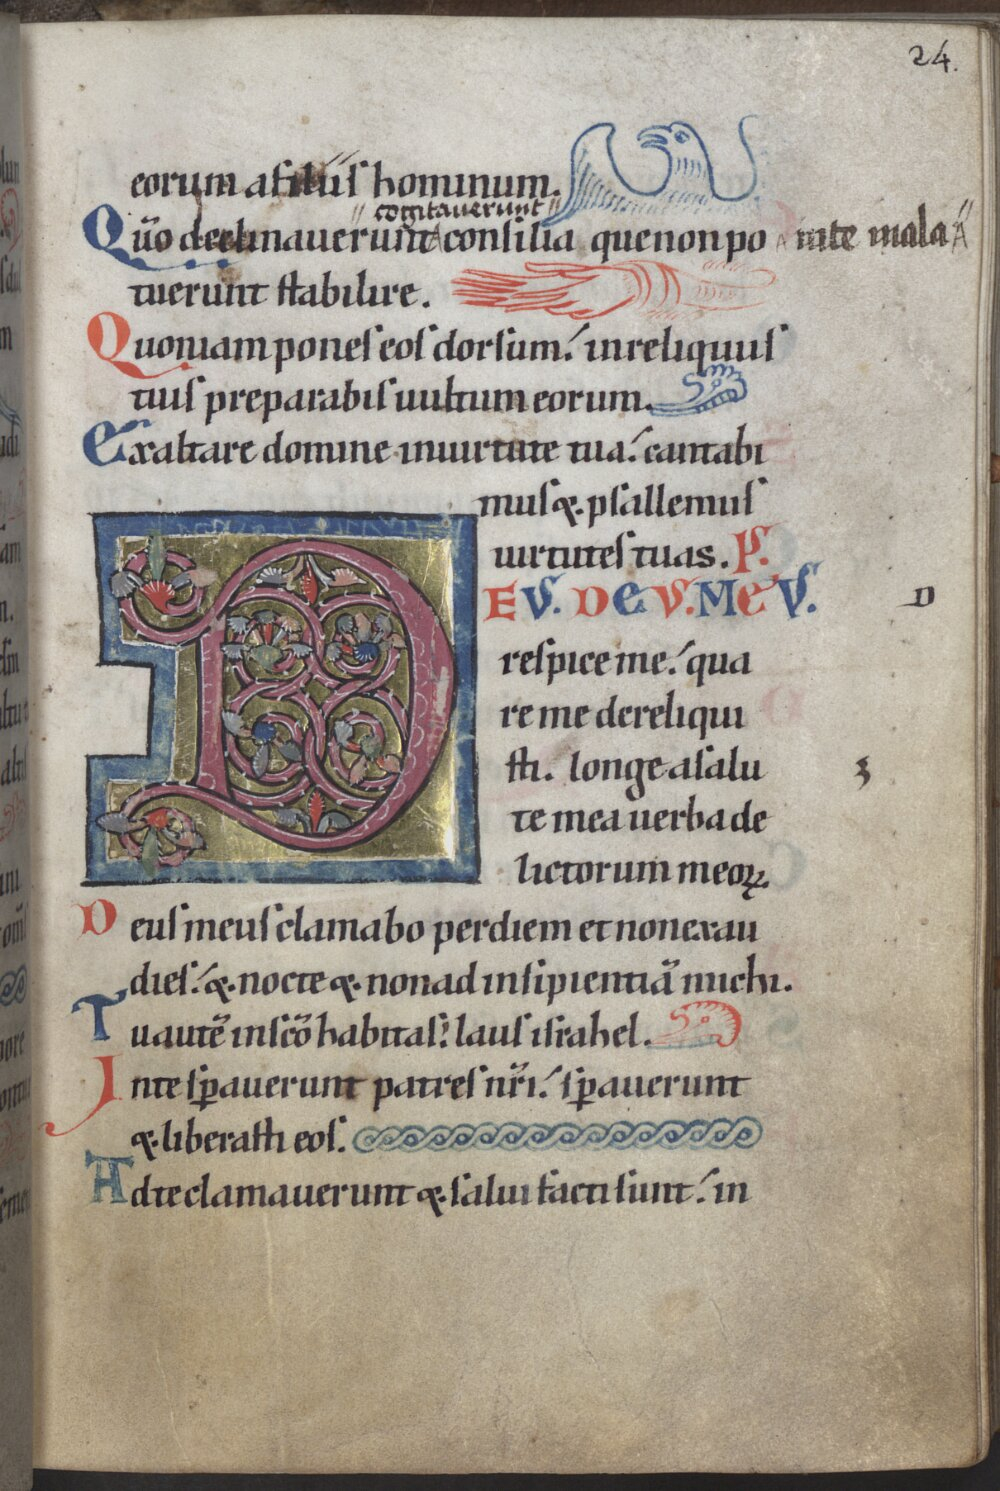 24.
eorum a filiis hominum.
cogitaverunt
Quō declinaverunt consilia que non po in te mala
tuerunt stabilire.
Quoniam pones eos dorsum: in reliquiis
tuis preparabis uultum eorum.
Exaltare domine in uirtute tua: cantabi
mus &. psallemus
uirtutes tuas. P̄S.
DEUS. DEUS. MEUS. D
respice me: qua
re me dereliqui
sti. longe a salu 3
te mea uerba de
lictorum meoꝝ.
Deus meus clamabo per diem et non exau
dies: &. nocte &. non ad insipientiā michi.
Tu autē in scō habitas: laus israhel.
In te spauerunt patres nr̄i: spauerunt
&. liberasti eos.
Ad te clamauerunt &. salui facti sunt: in